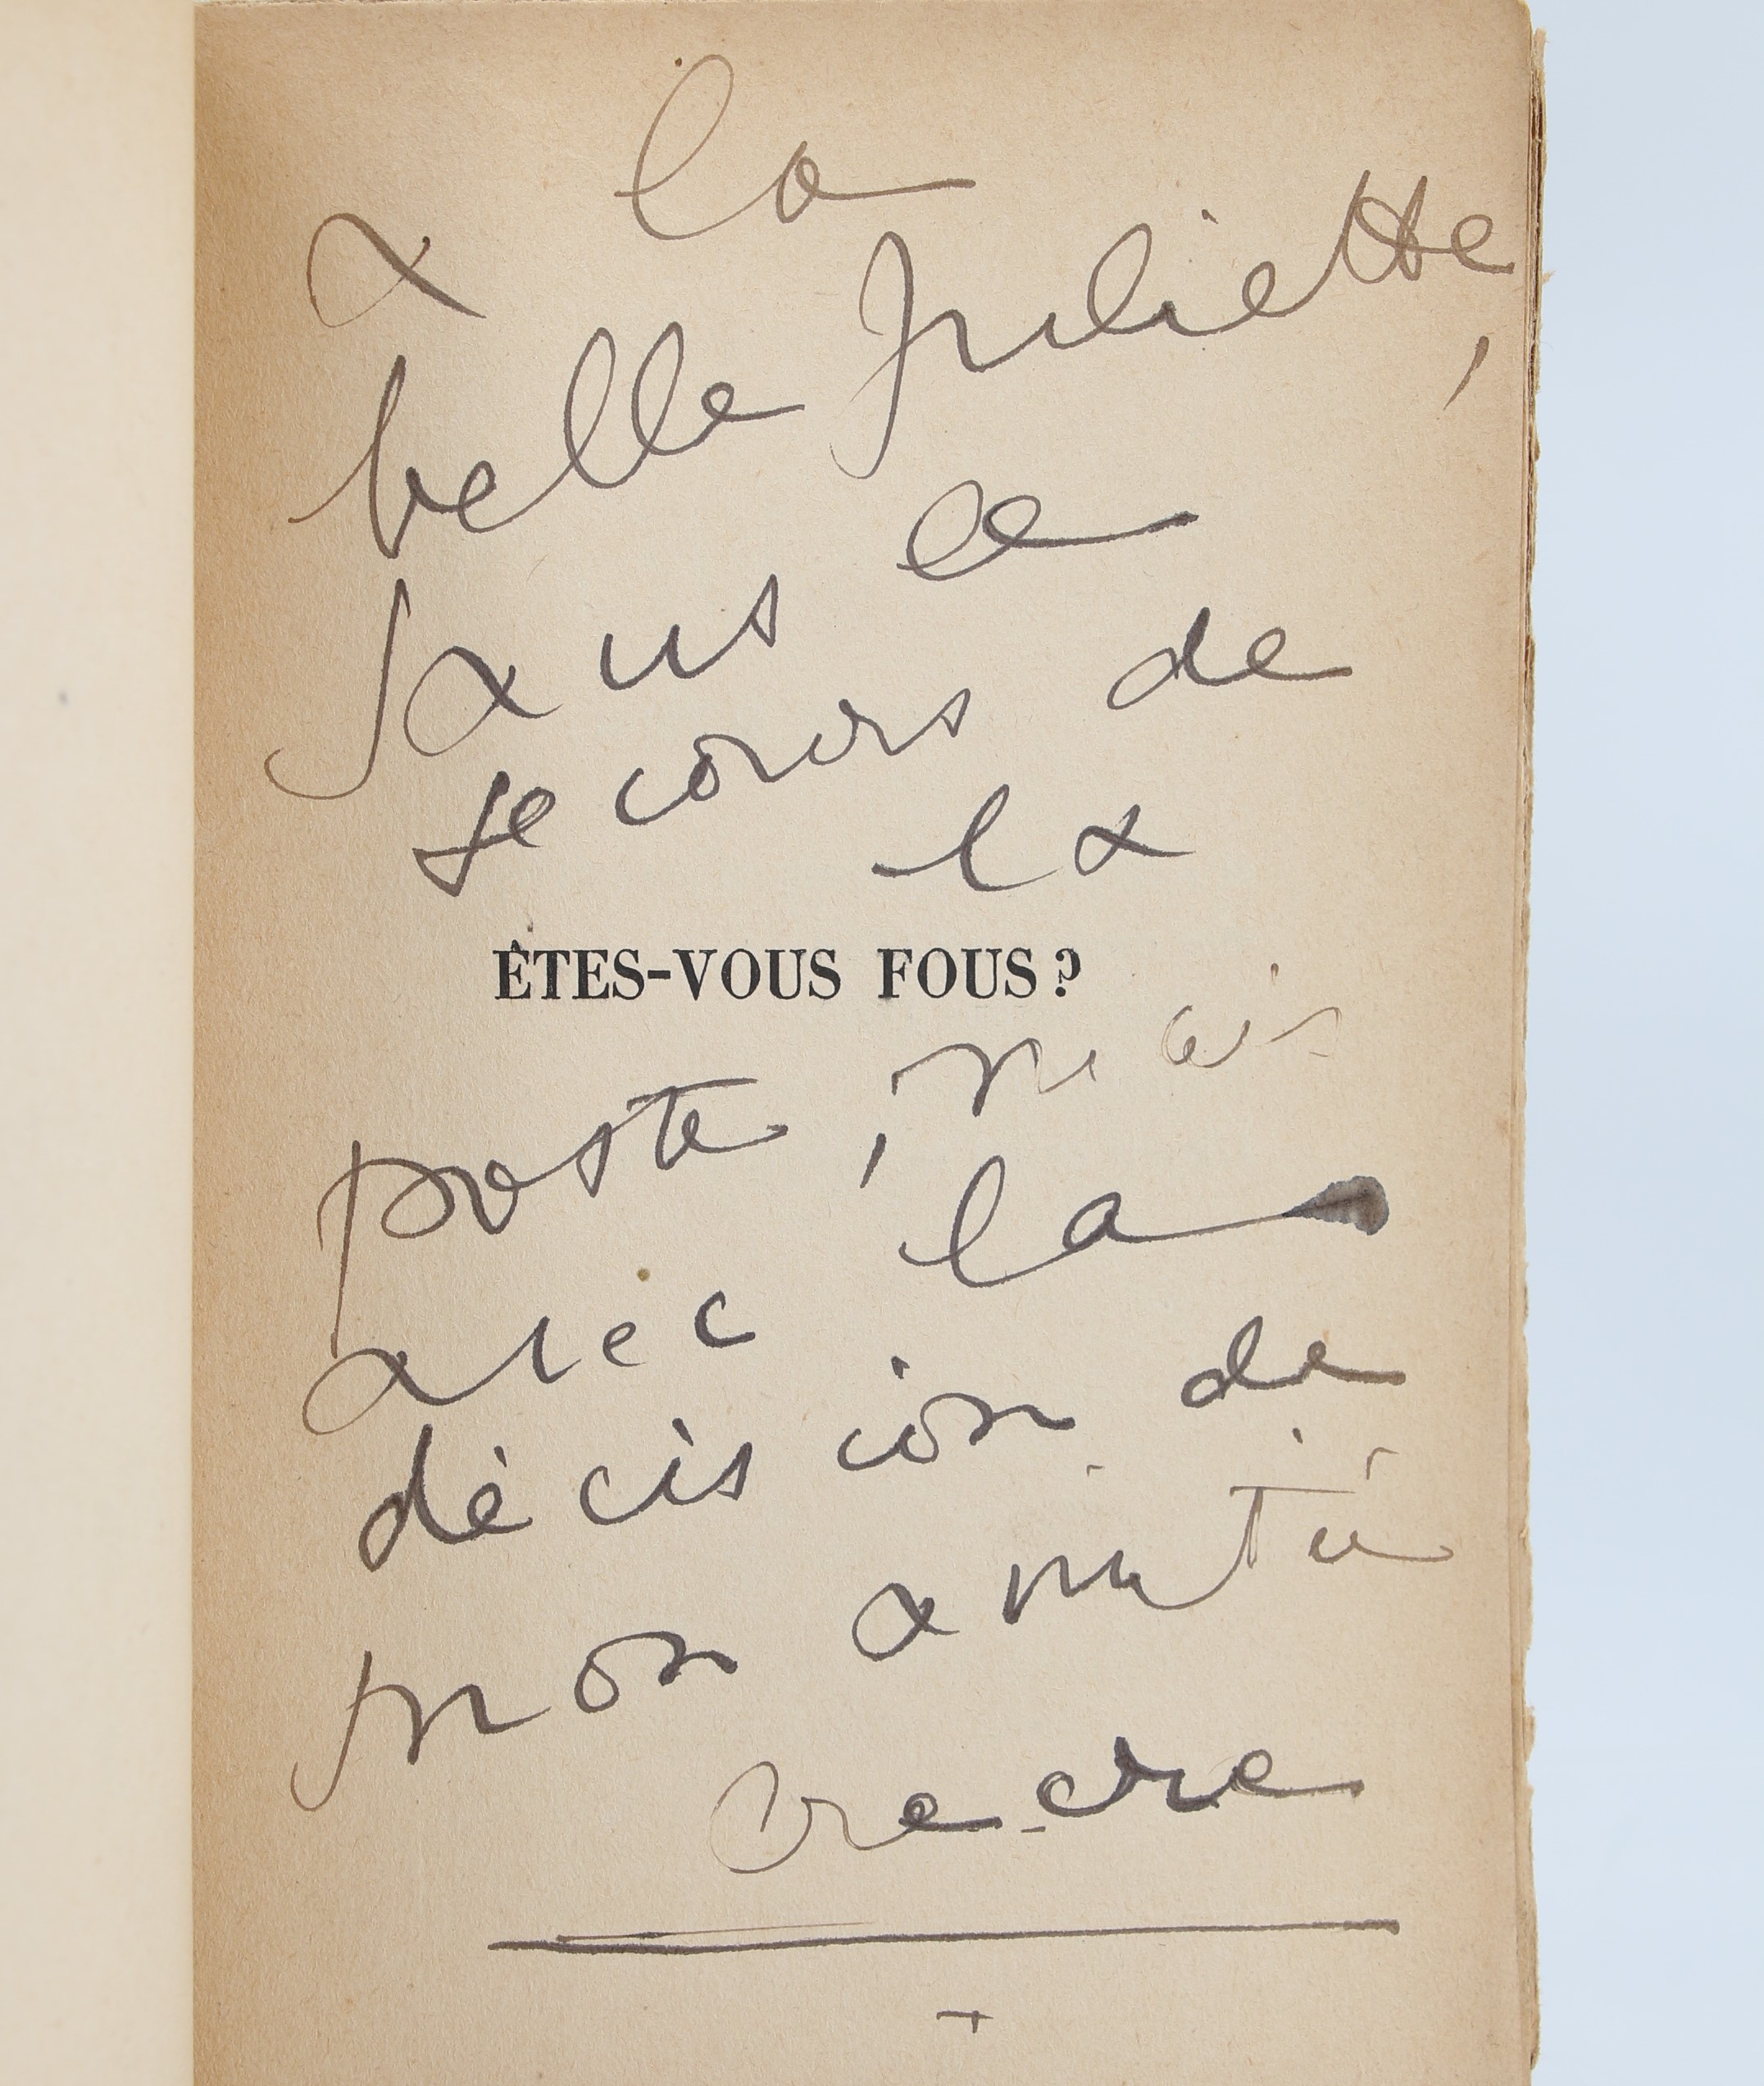 à la
belle Juliette,
sans le
secours de
la
ÊTES-VOUS FOUS?
poste, mais
avec la
décision de
mon amitié